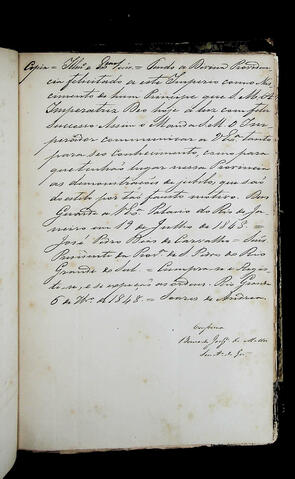 Copia = Illmo e Exmo Snr = Tendo a Divina Providen
cia felicitado a este Imperio com o Nas
cimento de hum Principe que S. M. a
Imperatriz Deo hoje á luz com feliz
successo Assim o Manda S. M. O Im
perador communicar a V Exa tanto
para seu conhecimento, como para
que tenhão lugar nessa Provincia
as demonstracões de jubilo, que são
do estilo por tão fausto motivo. Deos
Guarde a V Exa Palacio do Rio de Ja
neiro em 19 de Julho de 1848 =
José Pedro Dias de Carvalho = Snr
Presidente da Prova de S. Pedro do Rio
Grande do Sul = Cumpra-se e Regis
te-se, e se expeção as ordens. Rio Grande
6 de 1848 = Soares de Andrea
Conforme